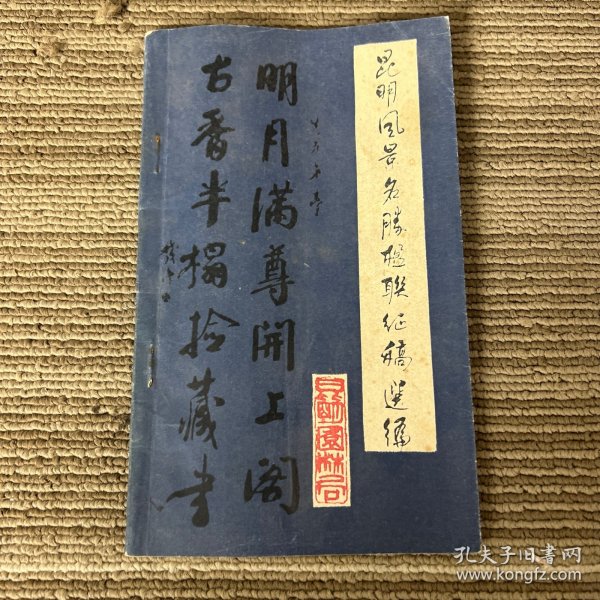 昆明风景名胜楹联征稿选编
明月满尊開上阁
古香半榻捡藏书
孔夫子旧书网
www.kongfz.com